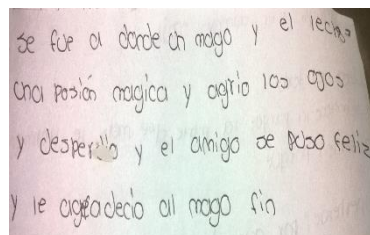 se fue a donde un mago y el
una posión magica y agrio los ogos
y desperto y el amigo se puso feliz
y le agradecio al mago fin